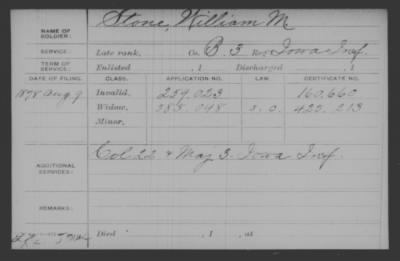 NAME OF SOLDIER: Stone, William M.
SERVICE: Late rank, Co. B. 3 Reg't Iowa Inf.
TERM OF SERVICE: Enlisted , 1 Discharged , 1
DATE OF FILING. CLASS. APPLICATION NO. LAW. CERTIFICATE NO.
1878 Aug 9 Invalid. 259.023 160.660
Widow. 588.098 423.213
Minor.
ADDITIONAL SERVICES: Col 22 & Maj 3. Iowa Inf.
REMARKS:
Died , 1 , at